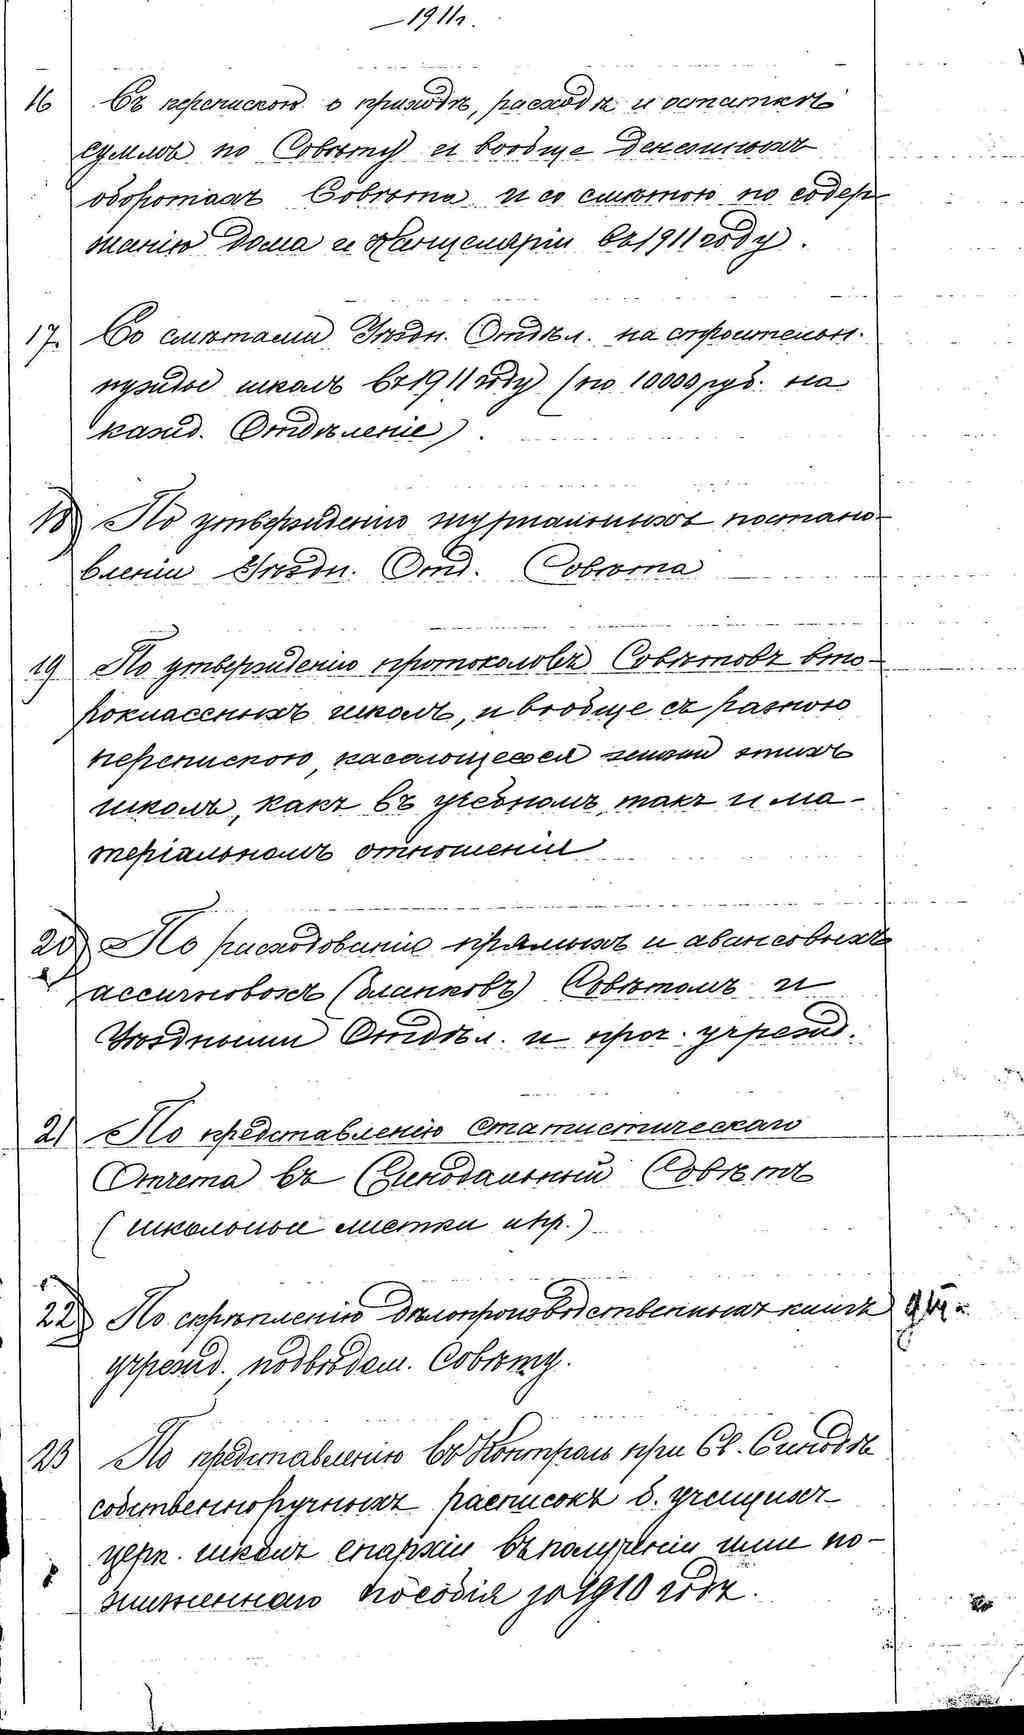 1911 г.
16 Съ перепискою о приходѣ, расходѣ и остаткѣ
суммъ по Совѣту и вообще денежныхъ
оборотахъ Совѣта и со смѣтою по содер-
жанію Дома и Канцеляріи въ 1911 году.
17. Со смѣтами Уѣздн. Отдѣл. на строительн.
нужды школъ въ 1911 году (по 10000 руб. на
кажд. Отдѣленіе).
18) По утвержденію журнальныхъ постано-
вленіи Уѣздн. Отд. Совѣта
19 По утвержденію протоколовъ Совѣтовъ вто-
роклассныхъ школъ, и вообще съ разною
перепискою, касающеюся жизни этихъ
школъ, какъ въ учебномъ, такъ и ма-
теріальномъ отношеніи
20) По расходованію прямыхъ и авансовыхъ
ассигновокъ (бланковъ) Совѣтомъ и
Уѣздными Отдѣл. и проч. учрежд.
21 По представленію Статистическаго
Отчета въ Синодальный Совѣтъ
(школьные листки и пр.)
22) По скрѣпленію дѣлопроизводственныхъ книгъ
учрежд., подвѣдом. Совѣту.
23 По представленію въ Контроль при Св. Синодѣ
собственноручныхъ расписокъ б. учащихъ
церк. школъ епархіи въ полученіи ими по-
жизненнаго пособія за 1910 годъ.